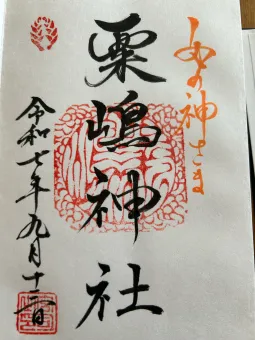 女の神さま
粟嶋神社
令和七年九月十二日